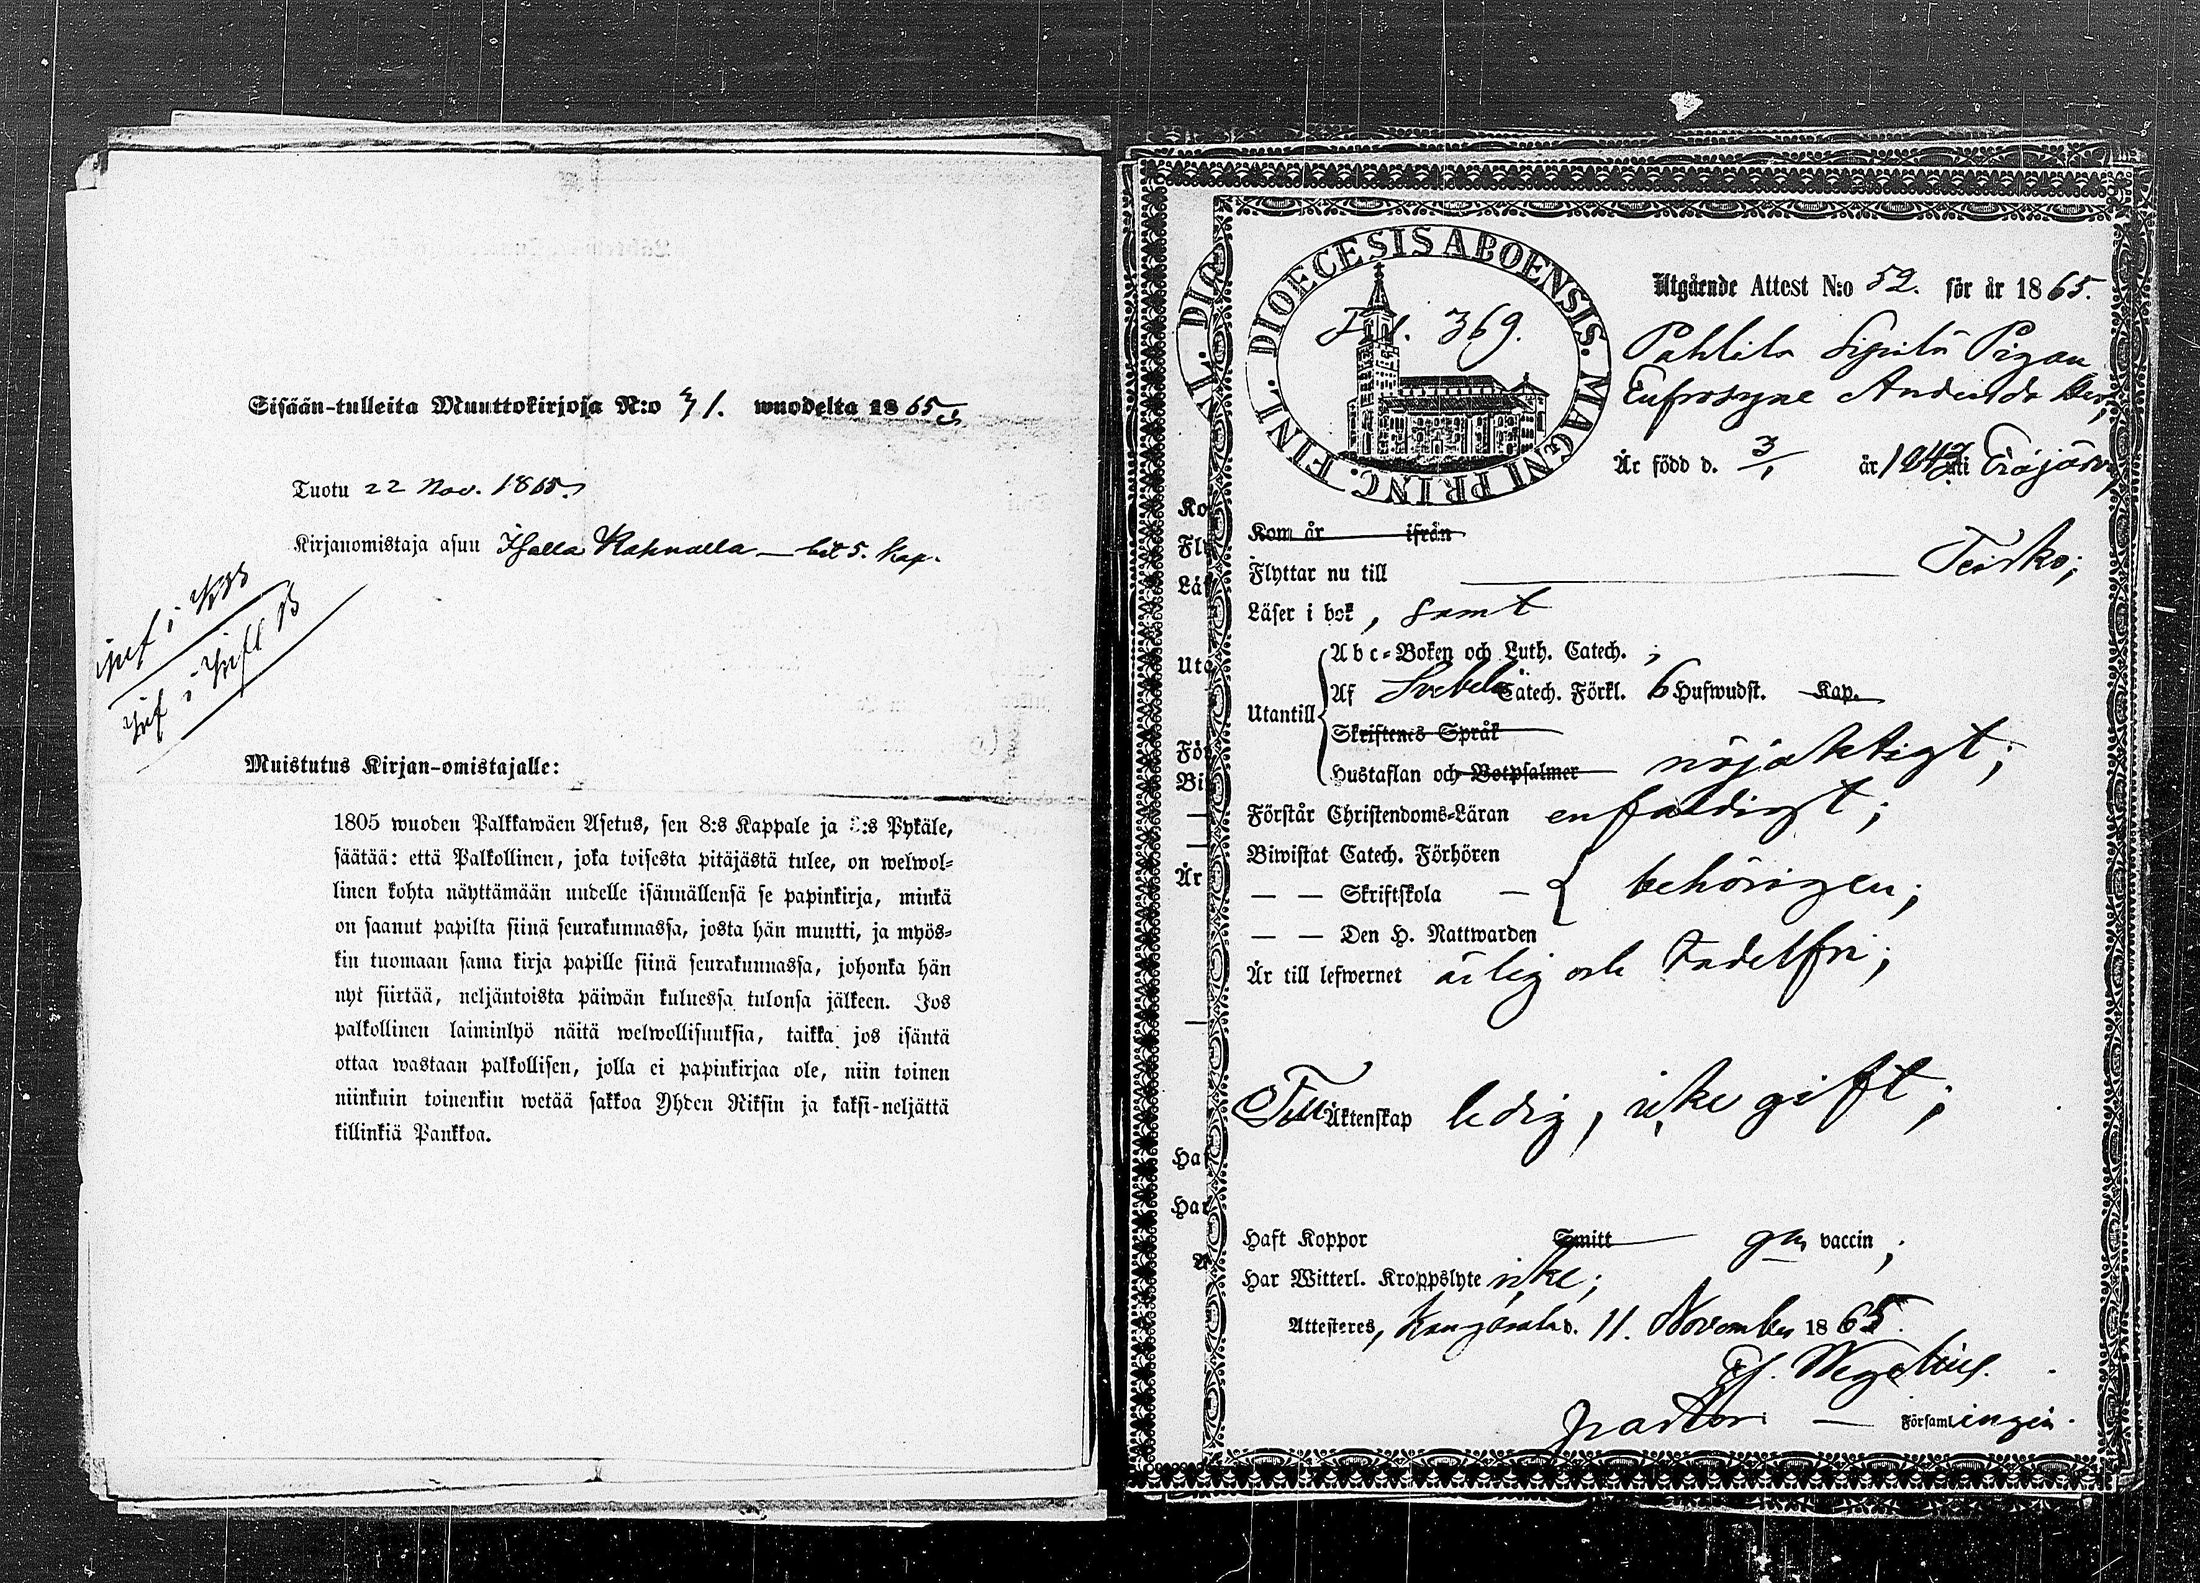 Sisään-tulleita Muuttokirjoja N:o 71. wuodelta 1865
Tuotu 22 Nov. 1865.
Kirjanomistaja asuu
inf i
inf i
Muistutus Kirjan-omistajalle:
1805 wuoden Palkkawäen Asetus, sen 8:s Kappale ja :s Pykäle,
säätää: että Palkollinen, joka toisesta pitäjästä tulee, on welwol-
linen kohta näyttämään uudelle isännällensä se papinkirja, minkä
on saanut papilta siinä seurakunnassa, josta hän muutti, ja myös-
kin tuomaan sama kirja papille siinä seurakunnassa, johonka hän
nyt siirtää, neljäntoista päiwän kuluessa tulonsa jälkeen. Jos
palkollinen laiminlyö näitä welwollisuuksia, taikka jos isäntä
ottaa wastaan palkollisen, jolla ei papinkirjaa ole, niin toinen
niinkuin toinenkin wetää sakkoa Yhden Riksin ja kaksi-neljättä
killinkiä Pankkoa.
DIOECESIS ABOENSIS. MAGNI PRINC. FINL.
369.
Utgående Attest N:o 52. för år 1865.
Pahlila Sipilä Pigan
Eufrosyne
Är född d. 3/1 år uti Eräjärvi
Kom år ifrån
Flyttar nu till Teisko;
Läser i bok, samt
Utantill
Abc-Boken och Luth. Catech. ;
Af Svebelii Catech. Förkl. 6 Hufwudst. Kap.
Skriftenes Språk
Hustaflan och Botpsalmer nöjaktigt;
Förstår Christendoms-Läran enfaldigt;
Biwistat Catech. Förhören
— — Skriftskola — behörigen;
— — Den H. Nattwarden
Är till lefwernet ärlig och tadelfri;
Till Äktenskap ledig, icke gift;
Haft Koppor Smitt gm vaccin;
Har Witterl. Kroppslyte icke;
Attesteres, Kangasala d. 11. November 1865.
Wegelius.
pastor — Församlingen.